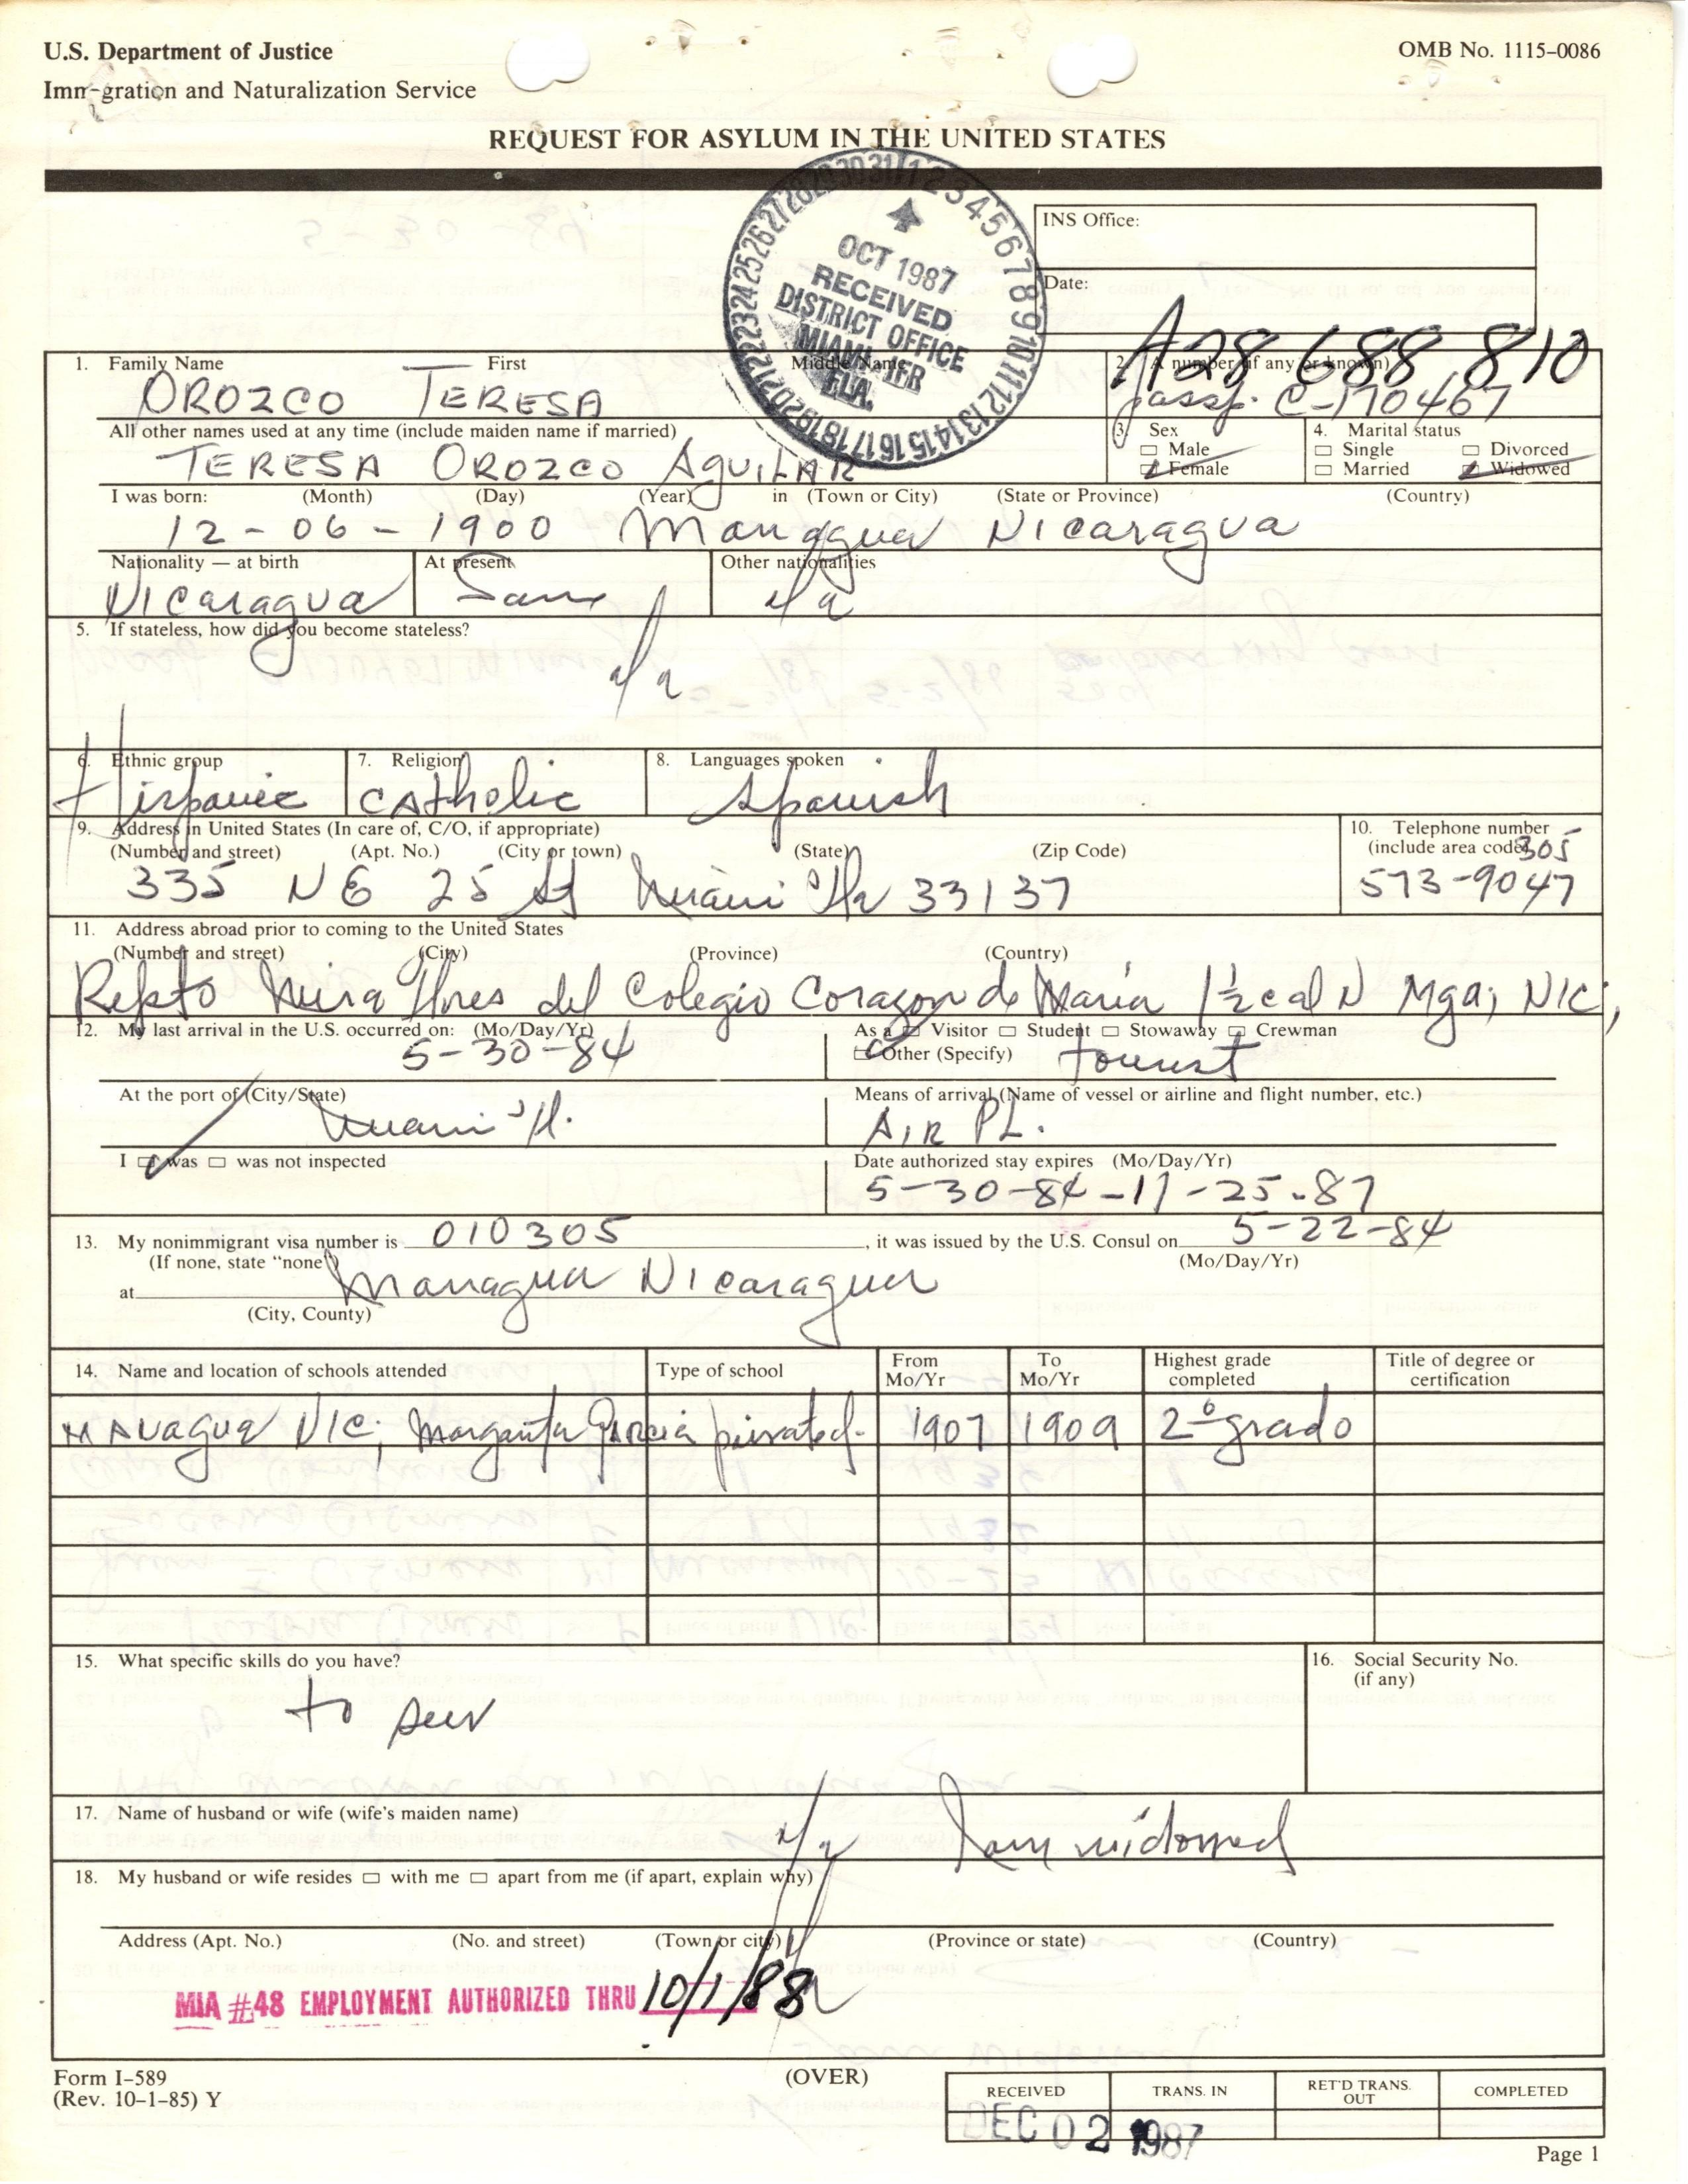 U.S. Department of Justice
Immigration and Naturalization Service
OMB No. 1115-0086
REQUEST FOR ASYLUM IN THE UNITED STATES
OCT 1987
RECEIVED
DISTRICT OFFICE
MIAMI, IFR
FLA.
INS Office:
Date:
A28 688 810
1. Family Name First Middle Name
OROZCO TERESA
2. A number (if any or known)
passp. C-170467
All other names used at any time (include maiden name if married)
TERESA OROZCO AguiLAR
3. Sex
Male
Female
4. Marital status
Single Divorced
Married Widowed
I was born: (Month) (Day) (Year) in (Town or City) (State or Province) (Country)
12-06-1900 Managua Nicaragua
Nationality — at birth At present Other nationalities
Nicaragua Same n/a
5. If stateless, how did you become stateless?
n/a
6. Ethnic group 7. Religion 8. Languages spoken
Hispanic Catholic Spanish
9. Address in United States (In care of, C/O, if appropriate)
(Number and street) (Apt. No.) (City or town) (State) (Zip Code)
335 NE 25 St Miami Fla 33137
10. Telephone number
(include area code) 305
573-9047
11. Address abroad prior to coming to the United States
(Number and street) (City) (Province) (Country)
Repto Mira Flores del Colegio Corazon de Maria 1½ c al N Mga, NIC,
12. My last arrival in the U.S. occurred on: (Mo/Day/Yr)
5-30-84
As a Visitor Student Stowaway Crewman
Other (Specify) tourist
At the port of (City/State)
Miami Fl.
Means of arrival (Name of vessel or airline and flight number, etc.)
AIR PL.
I was was not inspected
Date authorized stay expires (Mo/Day/Yr)
5-30-84-11-25-87
13. My nonimmigrant visa number is 010305, it was issued by the U.S. Consul on 5-22-84
(If none, state "none") (Mo/Day/Yr)
at Managua Nicaragua
(City, County)
14. Name and location of schools attended Type of school From Mo/Yr To Mo/Yr Highest grade completed Title of degree or certification
MANAgua NIC, Margarita Garcia 1907 1909 2º grado
15. What specific skills do you have?
to sew
16. Social Security No.
(if any)
17. Name of husband or wife (wife's maiden name)
n/a I am widowed
18. My husband or wife resides with me apart from me (if apart, explain why)
Address (Apt. No.) (No. and street) (Town or city) (Province or state) (Country)
MIA #48 EMPLOYMENT AUTHORIZED THRU 10/1/88
Form I-589
(Rev. 10-1-85) Y
(OVER)
RECEIVED TRANS. IN RET'D TRANS. OUT COMPLETED
DEC 02 1987
Page 1